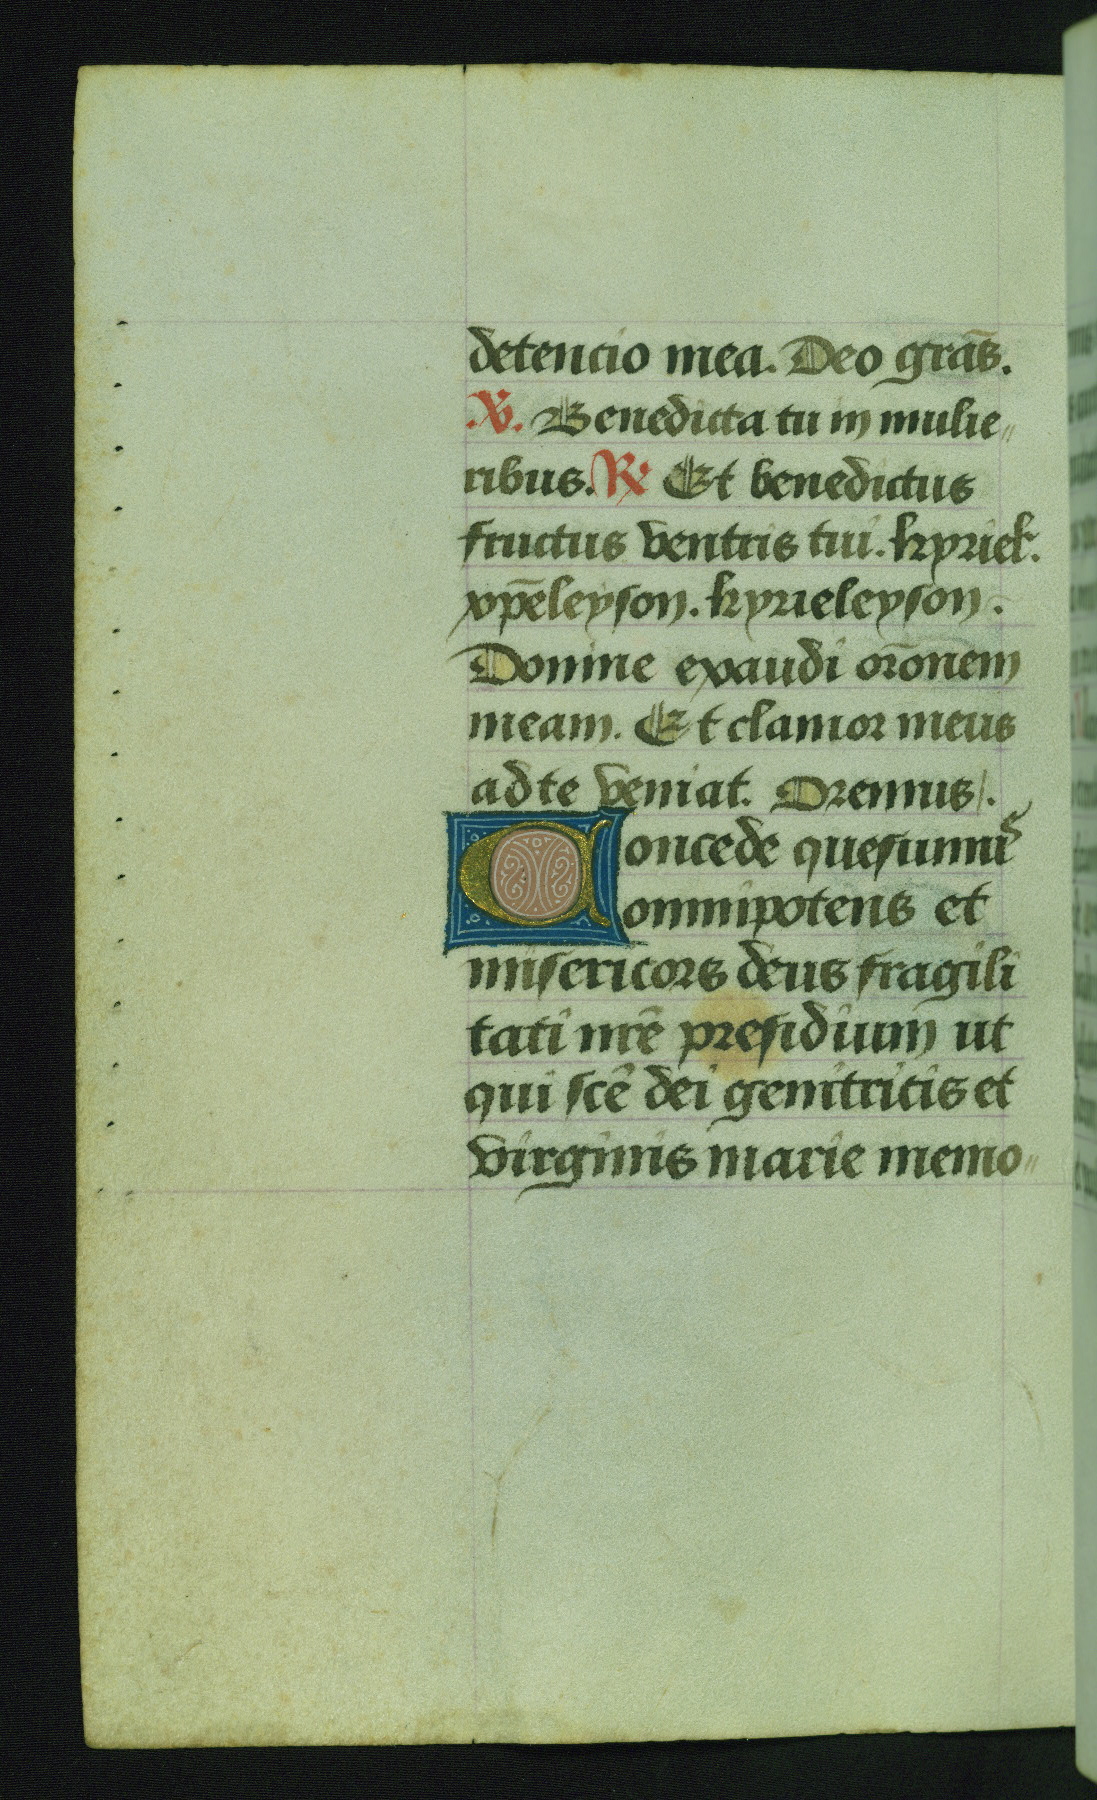 detencio mea. Deo gras̄.
.℣. Benedicta tu in mulie„
ribus. ℟ Et benedictus
fructus ventris tui. kyriel'.
xp̄eleyson. kyrieleyson.
Domine exaudi or̄onem
meam. Et clamor meus
ad te veniat. Oremus/.
Concede quesumus
omnipotens et
misericors deus fragili
tati nr̄e presidium ut
qui sc̄e dei genitricis et
virginis marie memo„